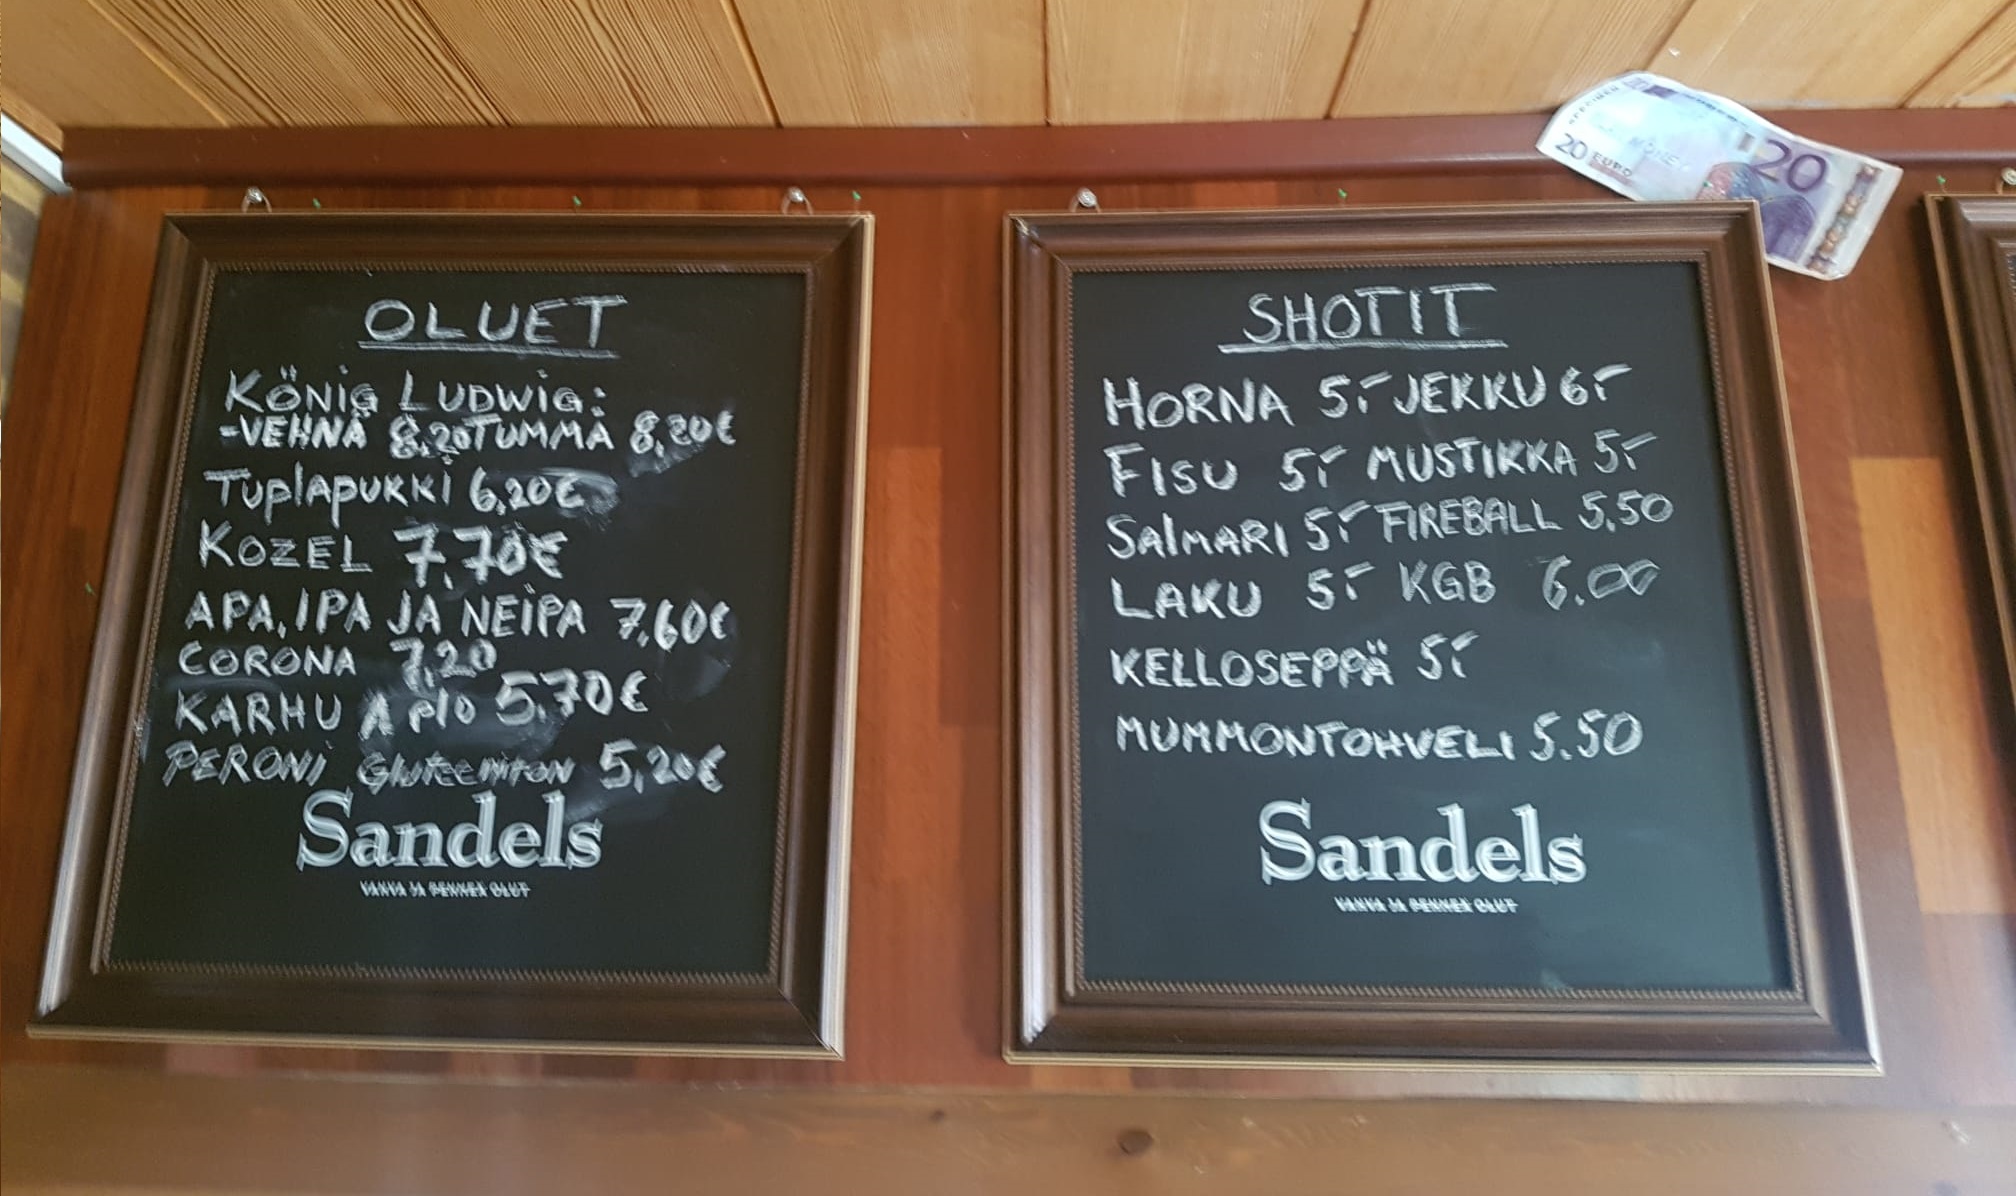 OLUET
KÖNIG LUDWIG:
-VEHNÄ 8,20 TUMMA 8,20€
Tuplapukki 6,20€
KOZEL 7,70€
APA, IPA JA NEIPA 7,60€
CORONA 7,20
KARHU A plo 5,70€
PERONI Gluteeniton 5,20€
Sandels
VAHVA JA PEHMEÄ OLUT
SHOTIT
HORNA 5,- JEKKU 6,-
FISU 5,- MUSTIKKA 5,-
SALMARI 5,- FIREBALL 5.50
LAKU 5,- KGB 6.00
KELLOSEPPÄ 5,-
MUMMONTOHVELI 5.50
Sandels
VAHVA JA PEHMEÄ OLUT
20 EURO
20